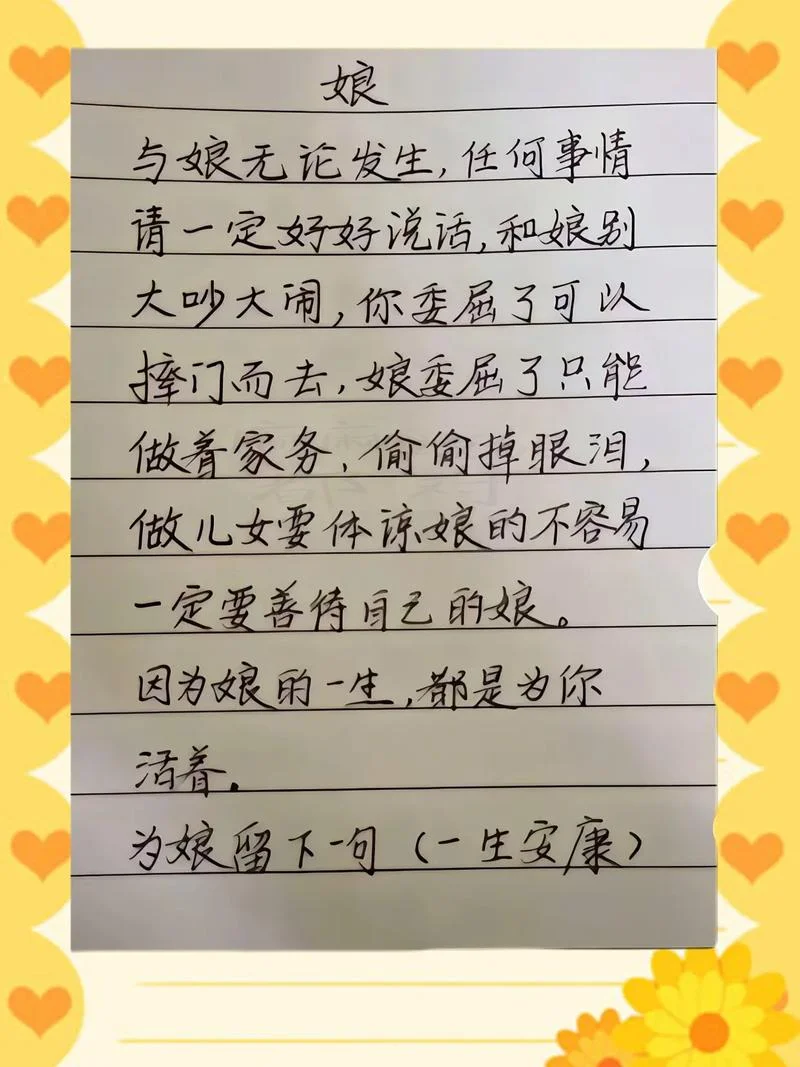 娘
与娘无论发生,任何事情
请一定好好说话,和娘别
大吵大闹,你委屈了可以
摔门而去,娘委屈了只能
做着家务,偷偷掉眼泪,
做儿女要体谅娘的不容易
一定要善待自己的娘。
因为娘的一生,都是为你
活着.
为娘留下一句(一生安康)